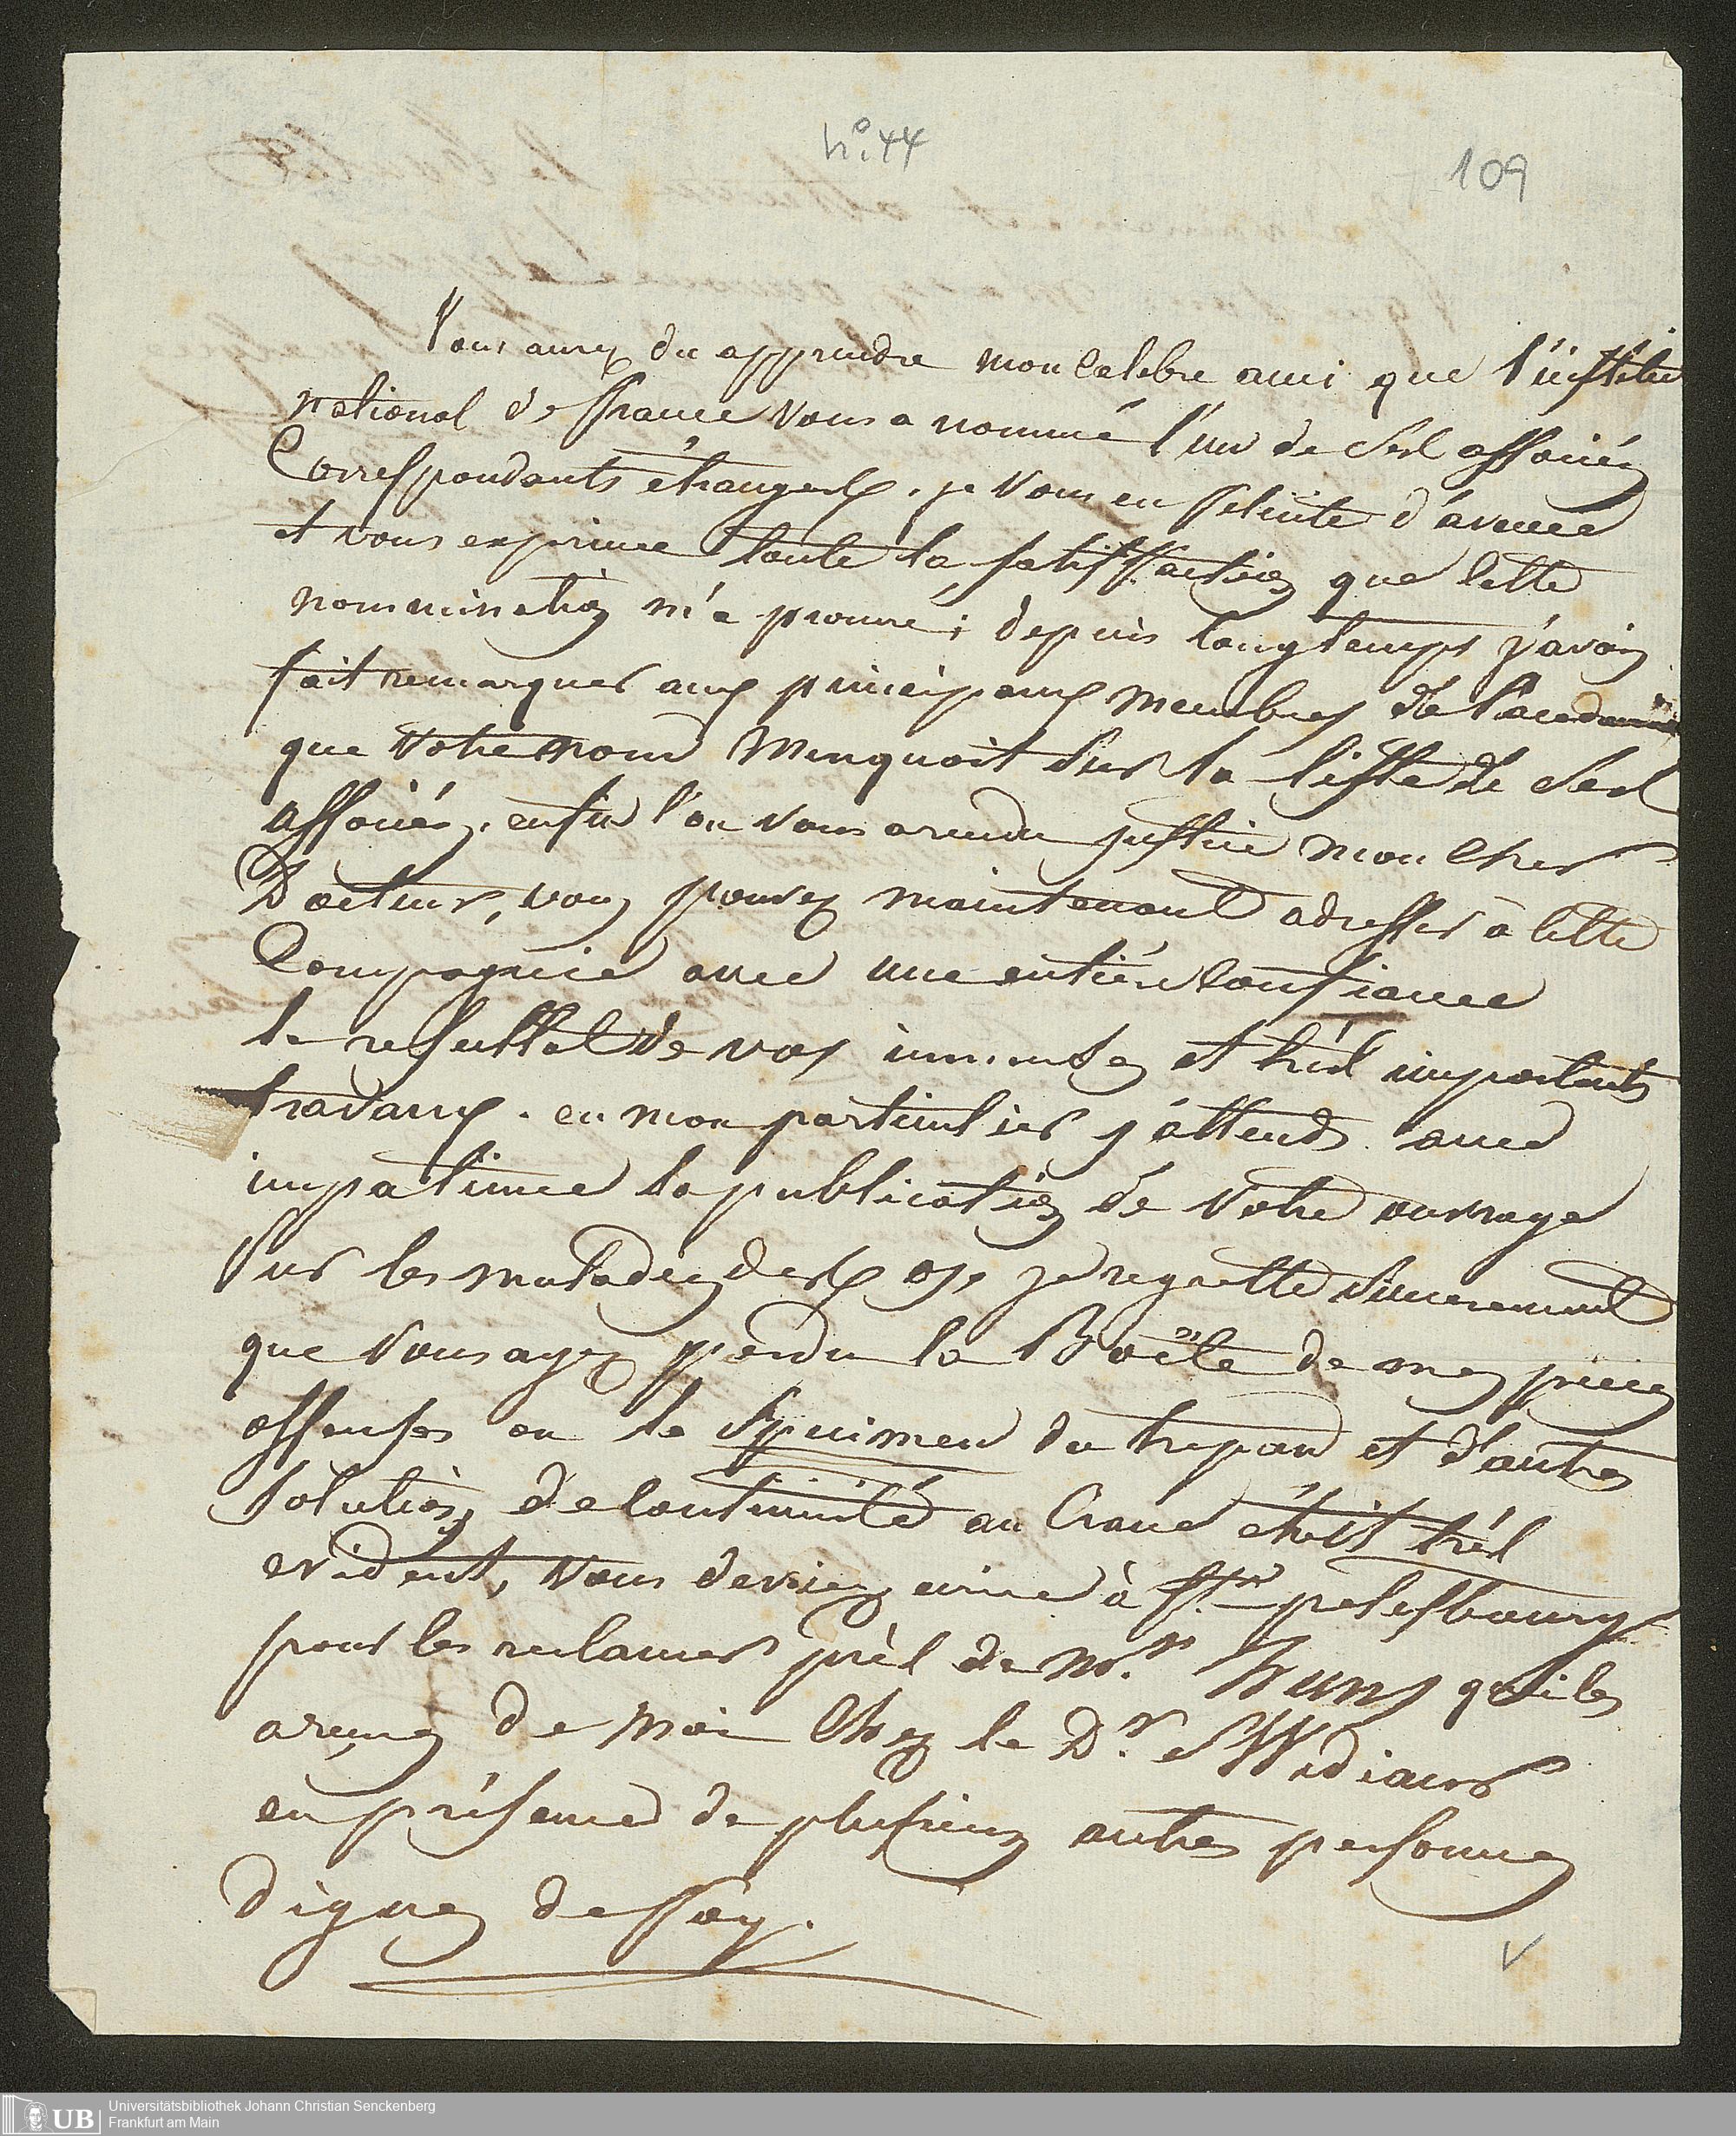 n.° 44
109
Vous aurez du apprendre mon Celebre ami que l'institu
national de france vous a nommé l'un de Ses associés
Correspondants étrangers. je vous en felicite d'avance
et vous exprime toute la satisfaction que Cette
nommination m'a procuré; depuis longtemps j'avois
fait remarquer aux principaux membres de l'academie
que votre nom Menquoit Sur la liste de Ses
associés. enfin l'on vous a rendu justice mon Cher
Docteur, vous pouvez maintenant adresser à Cette
Compagnie avec une entiére Confiance
le resultat de vos immenses et trés importants
travaux. en mon particulier j'attends avec
impatience la publication de Votre ouvrage
Sur les maladies des os, je regrette Sincerement
que Vous ayez perdu la Boëte de mes pieces
osseuses ou le Specimen du trepan et d'autres
Solutions de Continuité au Crane étoit trés
evident, vous devriez ecrire à St. petersbourg
pour les reclamer près de Mr. qui les
a reçues de Moi Chez le Dr.
en présence de plusieurs autres personnes
Dignes de foy.
V
UB
Universitätsbibliothek Johann Christian Senckenberg
Frankfurt am Main